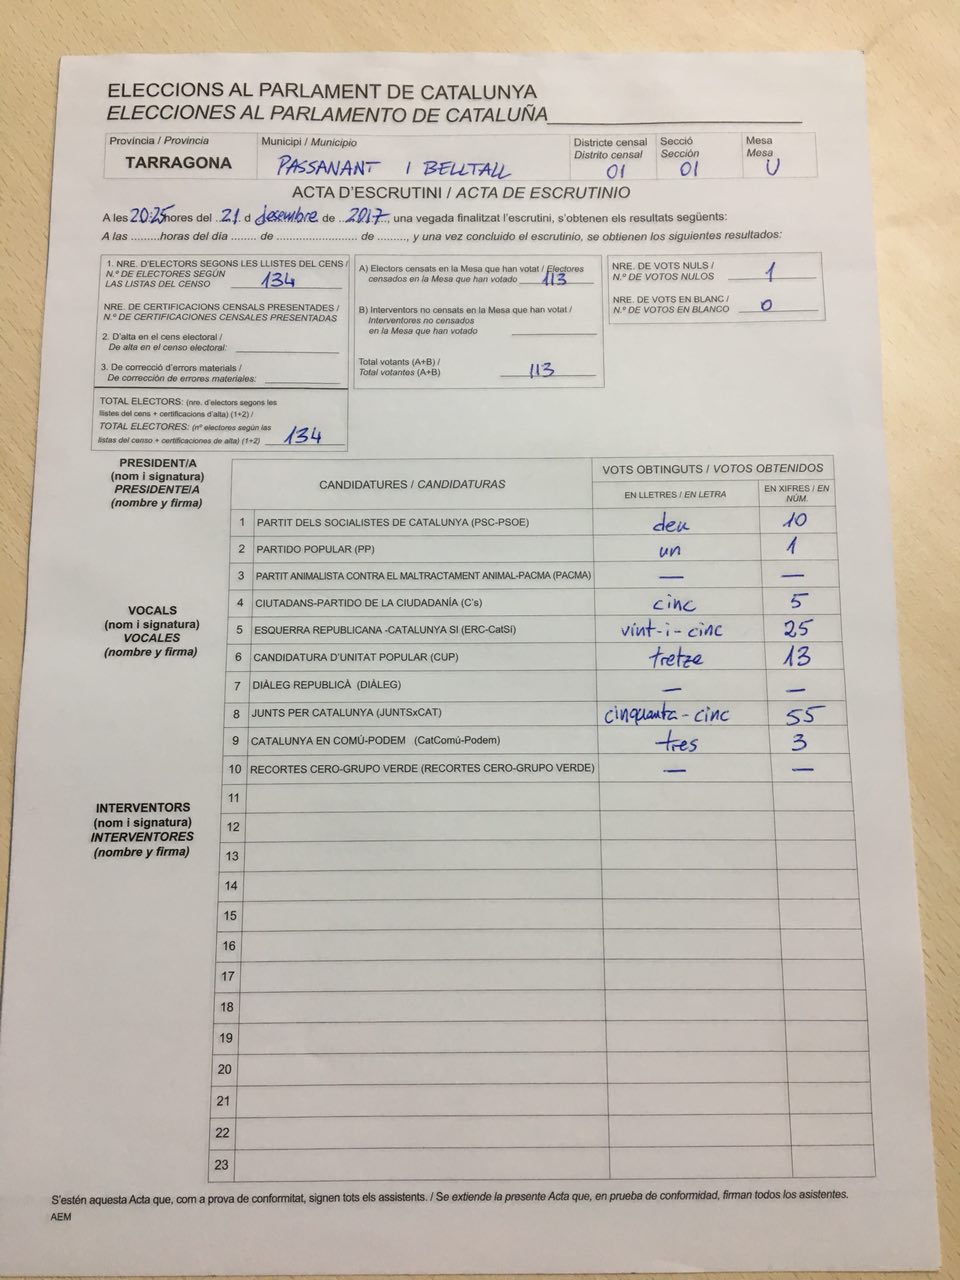 ELECCIONS AL PARLAMENT DE CATALUNYA
ELECCIONES AL PARLAMENTO DE CATALUÑA
Província / Provincia
TARRAGONA
Municipi / Municipio
PASSANANT I BELLTALL
Districte censal
Distrito censal
01
Secció
Sección
01
Mesa
Mesa
U
ACTA D'ESCRUTINI / ACTA DE ESCRUTINIO
A les 20:25 hores del 21 d desembre de 2017, una vegada finalitzat l'escrutini, s'obtenen els resultats següents:
A las .........horas del día ....... de ....................... de ........, y una vez concluido el escrutinio, se obtienen los siguientes resultados:
1. NRE. D'ELECTORS SEGONS LES LLISTES DEL CENS /
N.º DE ELECTORES SEGÚN
LAS LISTAS DEL CENSO 134
NRE. DE CERTIFICACIONS CENSALS PRESENTADES /
N.º DE CERTIFICACIONES CENSALES PRESENTADAS
2. D'alta en el cens electoral /
De alta en el censo electoral:
3. De correcció d'errors materials /
De corrección de errores materiales:
TOTAL ELECTORS: (nre. d'electors segons les
llistes del cens + certificacions d'alta) (1+2) /
TOTAL ELECTORES: (nº electores según las
listas del censo + certificaciones de alta) (1+2) 134
A) Electors censats en la Mesa que han votat / Electores
censados en la Mesa que han votado 113
B) Interventors no censats en la Mesa que han votat /
Interventores no censados
en la Mesa que han votado
Total votants (A+B) /
Total votantes (A+B) 113
NRE. DE VOTS NULS /
N.º DE VOTOS NULOS 1
NRE. DE VOTS EN BLANC /
N.º DE VOTOS EN BLANCO 0
PRESIDENT/A
(nom i signatura)
PRESIDENTE/A
(nombre y firma)
VOCALS
(nom i signatura)
VOCALES
(nombre y firma)
INTERVENTORS
(nom i signatura)
INTERVENTORES
(nombre y firma)
CANDIDATURES / CANDIDATURAS
VOTS OBTINGUTS / VOTOS OBTENIDOS
EN LLETRES / EN LETRA
EN XIFRES / EN
NÚM.
1 PARTIT DELS SOCIALISTES DE CATALUNYA (PSC-PSOE) deu 10
2 PARTIDO POPULAR (PP) un 1
3 PARTIT ANIMALISTA CONTRA EL MALTRACTAMENT ANIMAL-PACMA (PACMA) — —
4 CIUTADANS-PARTIDO DE LA CIUDADANÍA (C's) cinc 5
5 ESQUERRA REPUBLICANA -CATALUNYA SI (ERC-CatSí) vint-i-cinc 25
6 CANDIDATURA D'UNITAT POPULAR (CUP) tretze 13
7 DIÀLEG REPUBLICÀ (DIÀLEG) — —
8 JUNTS PER CATALUNYA (JUNTSxCAT) cinquanta-cinc 55
9 CATALUNYA EN COMÚ-PODEM (CatComú-Podem) tres 3
10 RECORTES CERO-GRUPO VERDE (RECORTES CERO-GRUPO VERDE) — —
11
12
13
14
15
16
17
18
19
20
21
22
23
S'estén aquesta Acta que, com a prova de conformitat, signen tots els assistents. / Se extiende la presente Acta que, en prueba de conformidad, firman todos los asistentes.
AEM